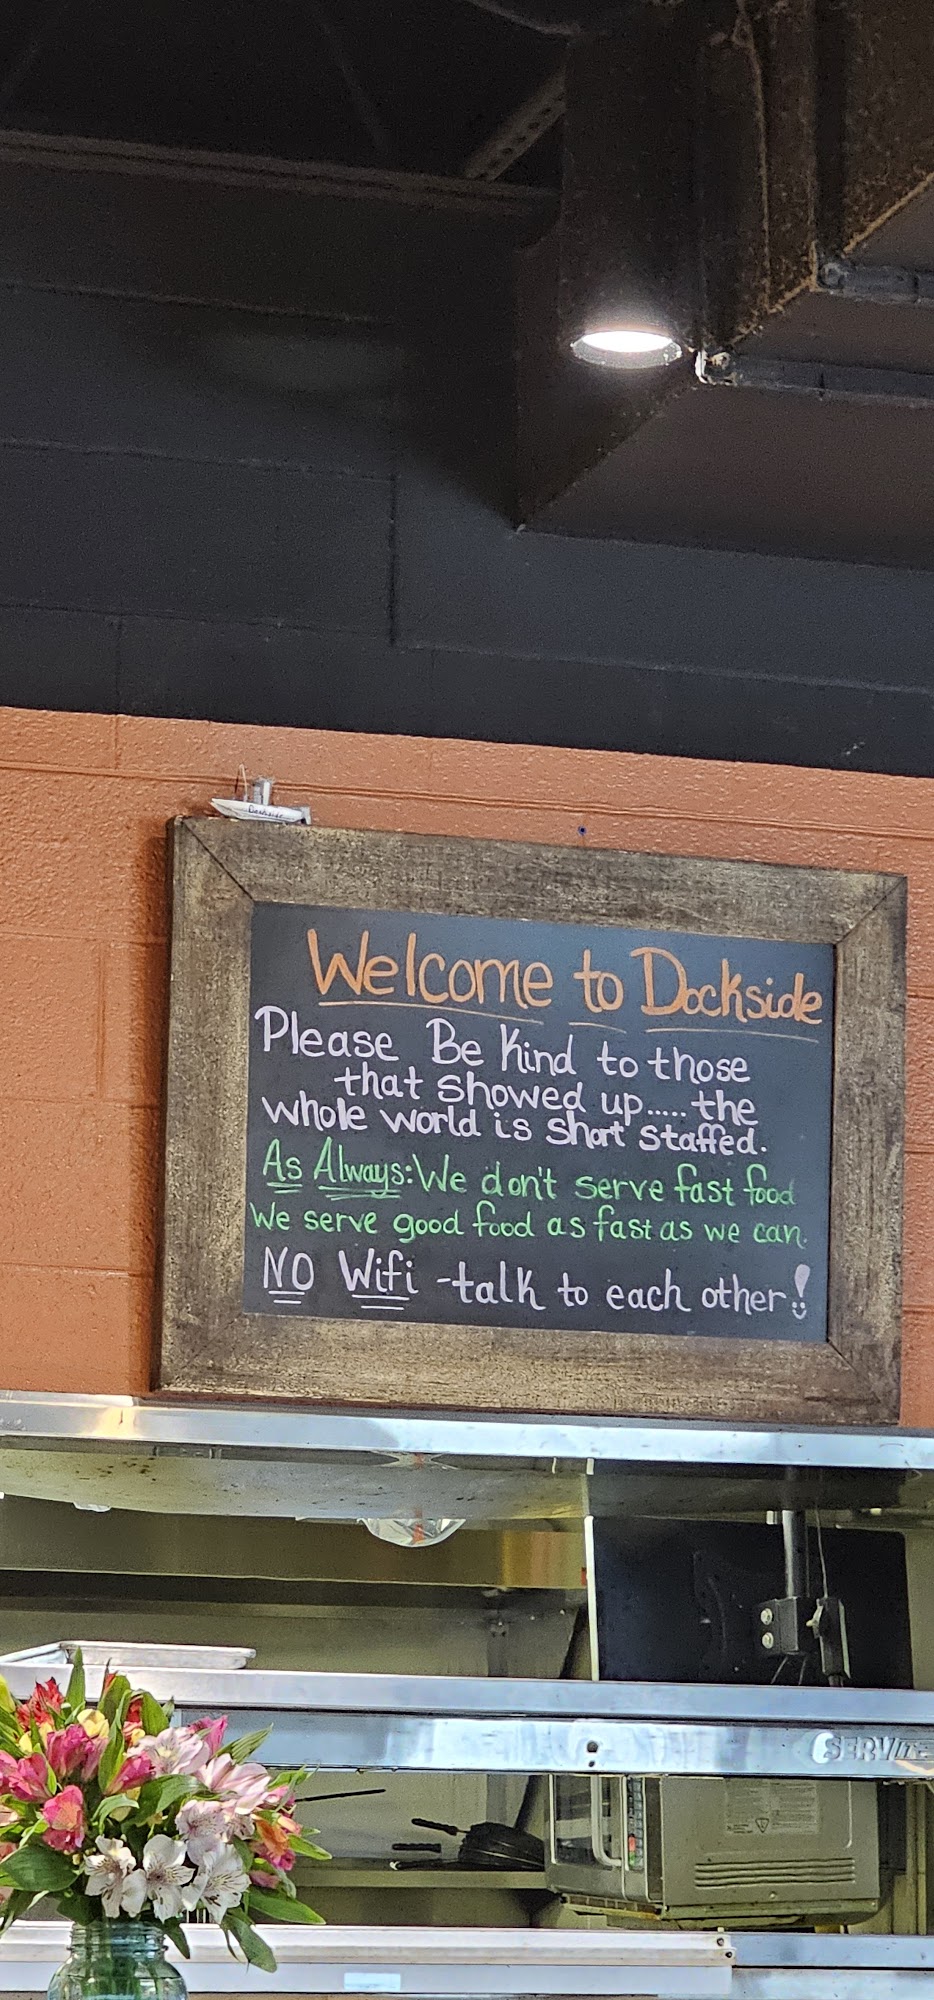 Dockside
Welcome to Dockside
Please Be Kind to those
that showed up.....the
whole world is short staffed.
As Always: We don't serve fast food
We serve good food as fast as we can.
NO Wifi - talk to each other!